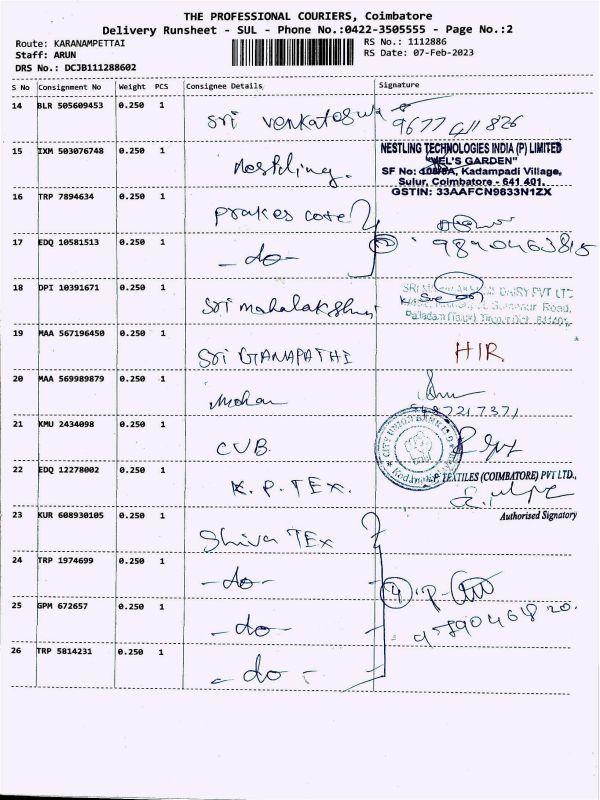 THE PROFESSIONAL COURIERS, Coimbatore
Delivery Runsheet - SUL - Phone No.:0422-3505555 - Page No.:2
Route: KARANAMPETTAI
RS No.: 1112886
Staff: ARUN
RS Date: 07-Feb-2023
DRS No.: DCJB111288602
S No Consignment No Weight PCS Consignee Details Signature
14 BLR 505609453 0.250 1 Sri
15 IXM 503076748 0.250 1 Nestling.
NESTLING TECHNOLOGIES INDIA (P) LIMITED
"VEL'S GARDEN"
SF No: Kadampadi Village,
Sulur, Coimbatore - 641 401.
GSTIN: 33AAFCN9833N1ZX
16 TRP 7894634 0.250 1 prakes cote
17 EDQ 10581513 0.250 1 - do -
18 DPI 10391671 0.250 1 Sri mahalakshmi
SRI DAIRY PVT LTD
Road,
19 MAA 567196450 0.250 1 Sri GANAPATHI HIR
20 MAA 569989879 0.250 1 Mohan
21 KMU 2434098 0.250 1 CUB
CITY UNION BANK LTD
22 EDQ 12278002 0.250 1 K. P. TEX.
TEXTILES (COIMBATORE) PVT LTD.,
Authorised Signatory
23 KUR 608930105 0.250 1 Shiva TEX
24 TRP 1974699 0.250 1 - do - 4
25 GPM 672657 0.250 1 - do -
26 TRP 5814231 0.250 1 - do -